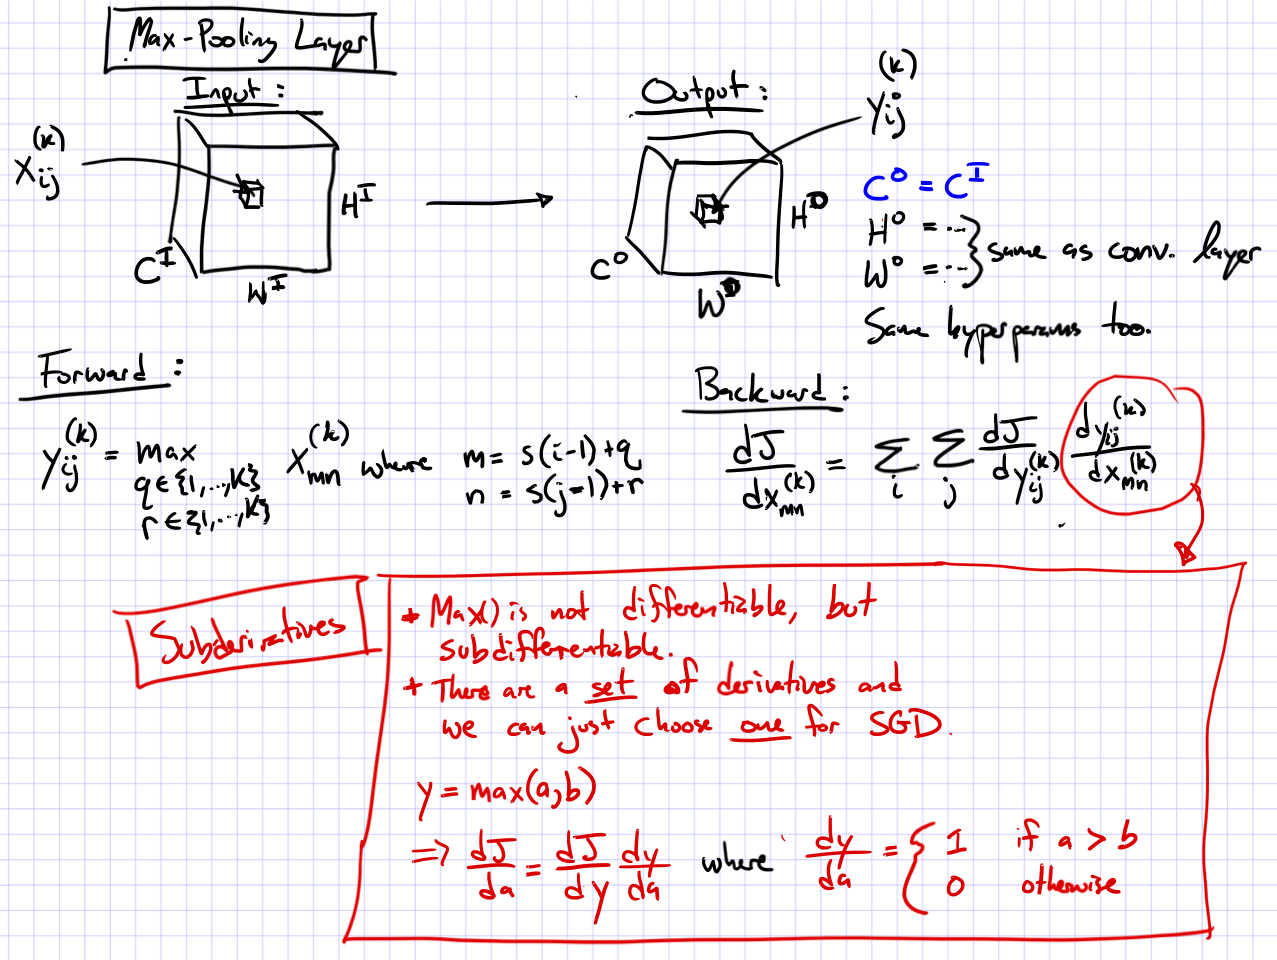 Max-Pooling Layer
Input:
x_ij^(k)
H^I
C^I
W^I
Output:
y_ij^(k)
H^O
C^O
W^O
C^O = C^I
H^O = ...
W^O = ...
} same as conv. layer
Same hyperparams too.
Forward:
y_ij^(k) = max x_mn^(k) where m = s(i-1)+q
q ∈ {1,...,K} n = s(j-1)+r
r ∈ {1,...,K}
Backward:
dJ/dx_mn^(k) = Σ_i Σ_j dJ/dy_ij^(k) dy_ij^(k)/dx_mn^(k)
Subderivatives
* Max() is not differentiable, but
subdifferentiable.
* There are a set of derivatives and
we can just choose one for SGD.
y = max(a,b)
⇒ dJ/da = dJ/dy dy/da where dy/da = { 1 if a > b
0 otherwise